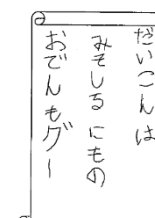 だいこんは
みそしる にもの
おでんもグー